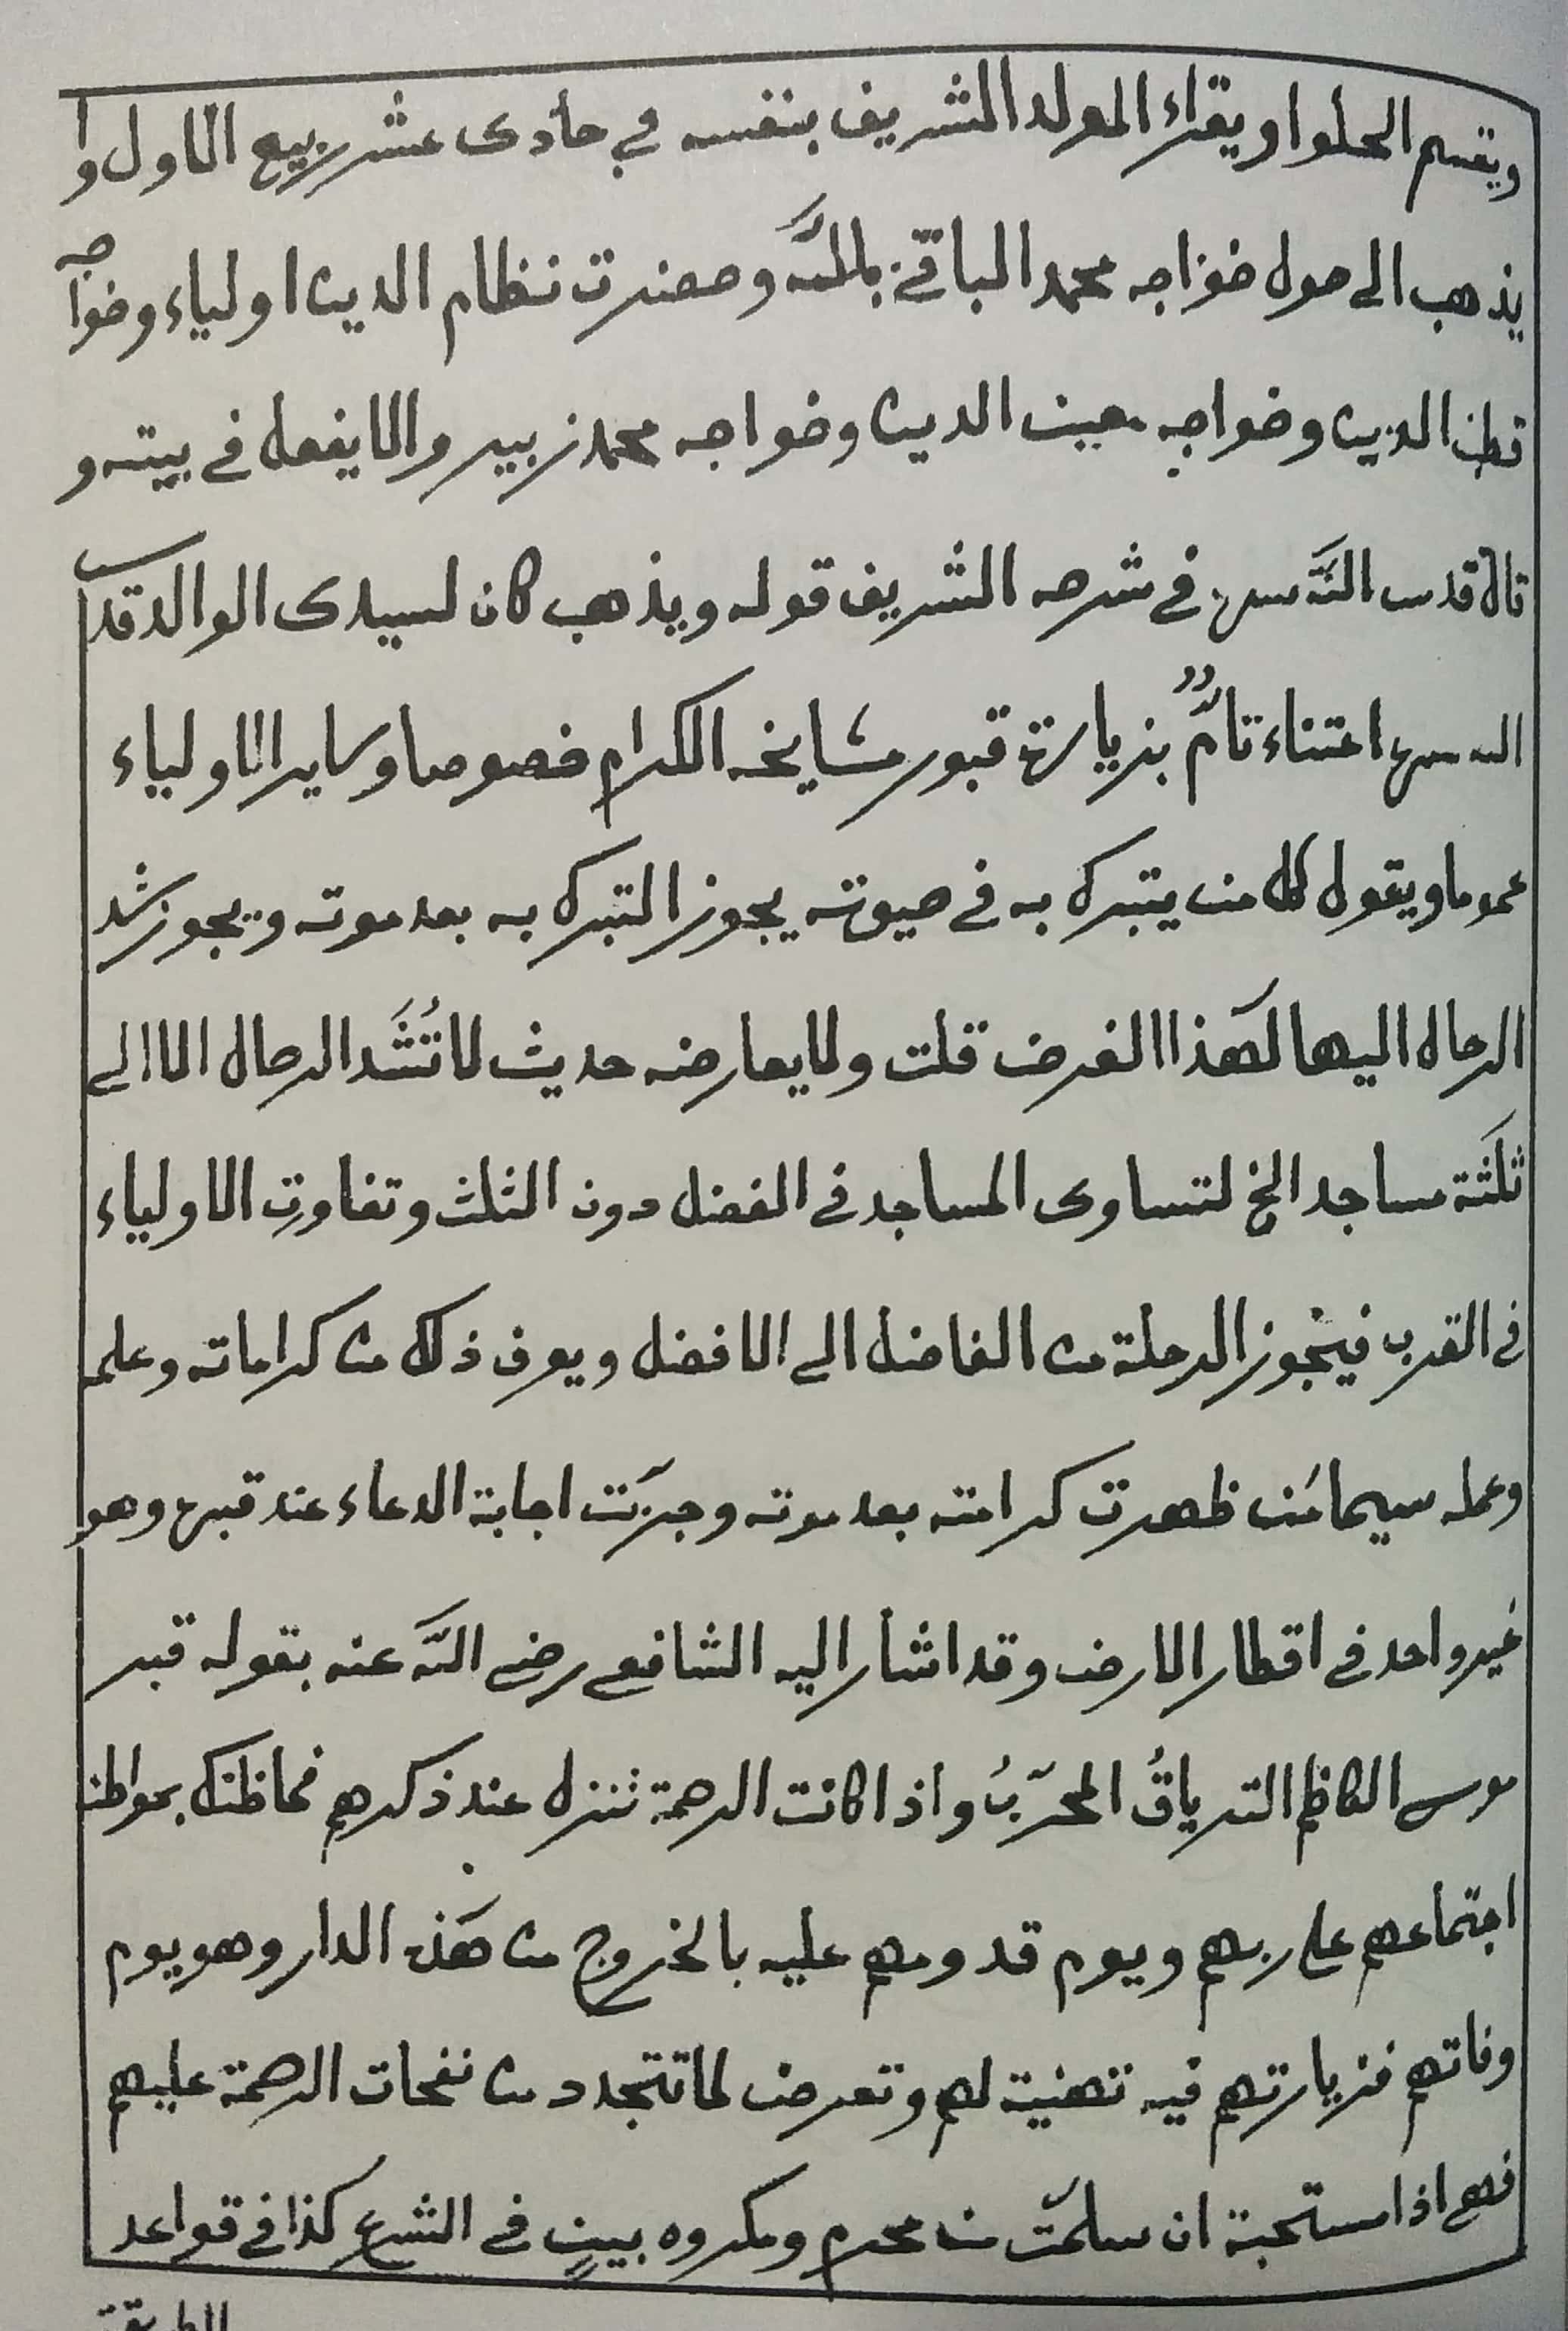 ويقسم الحلوا ويقراء المولد الشريف بنفسه في حادى عشر ربيع الاول وا
يذهب الى حول خواجه محمد الباقي بالله وحضرت نظام الدين اولياء وخواجه
قطب الدين وخواجه معين الدين وخواجه محمد زبير والا يفعل في بيته و
قال قدس الله سره في شرحه الشريف قوله ويذهب كان لسيدى الوالد قدس
الله سره اعتناء تامٌّ بزيارة قبور مشايخه الكرام خصوصا وساير الاولياء
عموما ويقول كل من يتبرك به في حيوته يجوز التبرك به بعد موته ويجوز شد
الرحال اليها لهذا الغرض قلت ولا يعارضه حديث لا تُشَد الرحال الا الى
ثلثة مساجد الخ لتساوى المساجد في الفضل دون الثلث وتفاوت الاولياء
في القرب فيجوز الرحلة من الفاضل الى الافضل ويعرف ذلك من كراماته وعلمه
وعمله سيما مَن ظهرت كرامته بعد موته وجرّبت اجابة الدعاء عند قبره وهو
غير واحد في اقطار الارض وقد اشار اليه الشافعي رضي الله عنه بقوله قبر
موسى الكاظم الترياقُ المجرّبُ واذا كانت الرحمة تنزل عند ذكرهم فما ظنك بمواطن
اجتماعهم على ربهم ويوم قدومهم عليه بالخروج من هذه الدار وهو يوم
وفاتهم فزيارتهم فيه تهنية لهم وتعرض لما تتجدد من نفحات الرحمة عليهم
فهي اذا مستحبة ان سلمت من محرم ومكروه بينٍ في الشرع كذا في قواعد
الطريقة